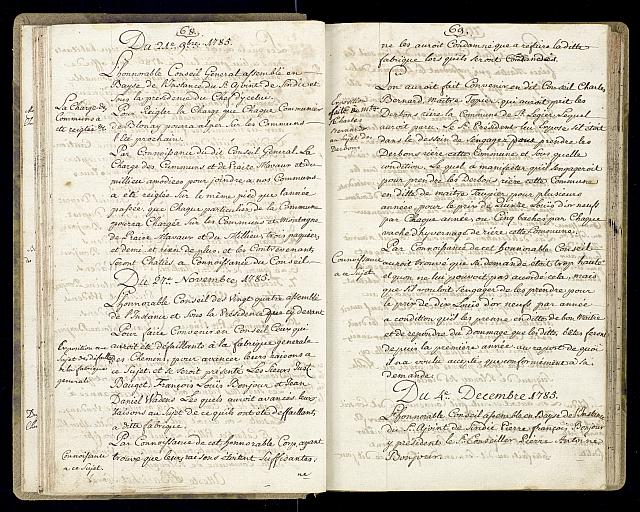 68.
Du 21e. 9bre. 1785.
L'honnorable Conseil General assemblé en
Bayse de l'instance du Sr. Ajoint de Sindic et
Sous la présidence du Chef d'iceluy
La Charge des
Communs a
été reiglée
Pour Reigler la Charge que Chaque Communier
de Blonay pourra alper Sur les Communs
l'été prochain.
Par Connoissance du dit Conseil General. La
Charge des Communs et de
milieu
pour joindre a nos Communs
a été reiglée Sur le même pied que l'année
passée, que Chaque particulier de la Commune
pourra Charger Sur les Communs et Montagne
de et du Millieu trois paquier,
et demi et rien de plus, et les Contrevenant
Seront Chatiés a Connoissance du Conseil
Du 27e. Novembre, 1785.
L'honnorable Conseil des Vingt quatre assemblé
de l'instance et Sous la Présidence que cy devant
Exposition au
Sujet des défaillants
a la fabrique
generale
Pour faire Convenir en Conseil Ceux qui
auroit été défaillants a la fabrique generale
es Chemin, pour avancer leurs raisons a
ce Sujet. et Se Seroit présenté. Les Sieurs
François Louis Bonjour et Jean
Daniel les quels auroit avancés leurs
raisons au Sujet de ce qu'ils ont été deffaillant,
a dite fabrique
Connoissance
a ce Sujet.
Par Connoissance de cet honnorable Corp, ayant
trouvé que leurs raisons étoient Suffisantes,
ne
69.
ne les auroit Condamné que a refaire la ditte
fabrique lors quils Seront Commandés.
Exposition
faite de Mtre
Charles
Bernard
au Sujet des
Derbons
L'on auroit fait Convenir en dit Conseil Charles
Bernard Maître Tapier, qui auroit prit les
Derbons riére la Commune de St. Legier, lequel
auroit paru. Le Sr. Président luy expose S'il étoit
dans le dessein de S'engager pour prendre les
Derbons riére cette Commune et Sous quelle
Condition. Le quel a manifester qu'il S'engageroit
pour prendre les derbons riére cette Commune
en ditte de maître Taupier pour plusieurs
années pour le prix de Louis d'or neufs
par Chaque années ou Cinq baches par Chaque
vache d'hyvernage de riére cette Commune.
Connoissance
a ce Sujet
Par Connoissance de cet honnorable Conseil
auroit trouvé que Sa demande étoit trop haute
et qu'on ne luy pouvoit pas acordé cela, mais
que S'il vouloit S'engager de les prendre, pour
le prix de dix Louis d'or neufs par année
a condition qu'il les prenne en ditte de bon maitre
et de repondre du Dommage que les dittes bêtes feront
depuis la premiére année. au raport de quoi
il n'a voulu accepter que conformement a Sa
demande.
Du 4e. Decembre 1785.
L'honnorable Conseil assemblé en Bayse de l'instance
du Sr. Ajoint de Sindic Pierre François Bonjour
y président le Sr. Conseiller Pierre Antoine
Bonjour.